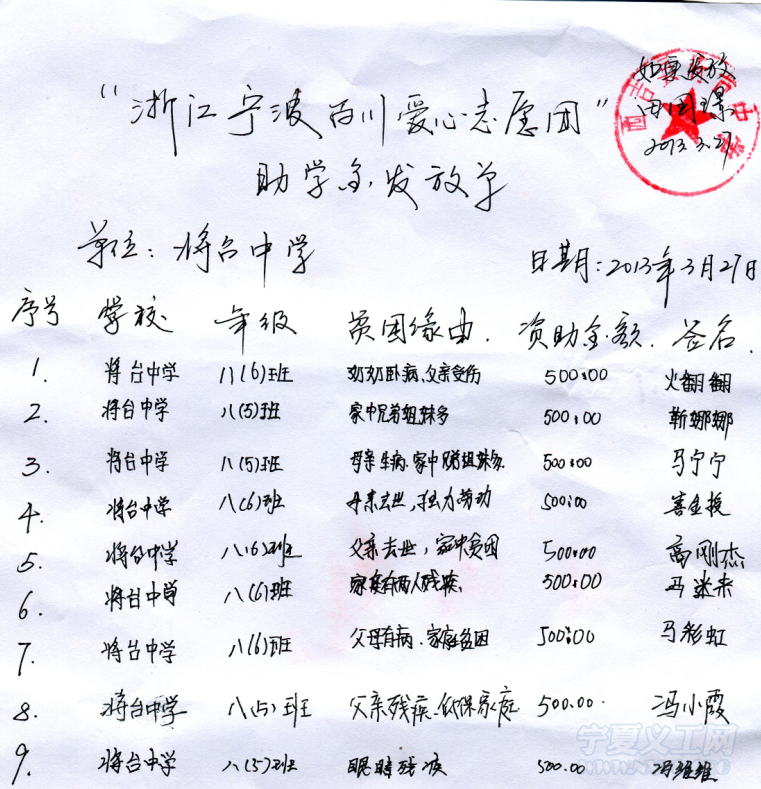 如实发放
田国璟
2013.3.27
“浙江宁波百川爱心志愿团”
助学金发放单
单位：将台中学
日期：2013年3月27日
序号 学校 年级 贫困缘由. 资助金额. 签名.
1. 将台中学 八(6)班 奶奶卧病、父亲受伤 500:00 火翻翻
2. 将台中学 八(5)班 家中兄弟姐妹多 500:00 靳娜娜
3. 将台中学 八(5)班 母亲生病、家中兄弟姐妹多. 500:00 马宁宁
4. 将台中学 八(6)班 去世, 劳动 500:00
5. 将台中学 八(6)班 父亲去世，家中贫困 500:00 高刚杰
6. 将台中学 八(6)班 家庭有两人残疾. 500:00 马米米
7. 将台中学 八(6)班 父母有病、家庭贫困 500:00 马彩虹
8. 将台中学 八(5)班 父亲残疾、低保家庭 500.00. 冯小霞
9. 将台中学 八(5)班 眼睛残疾 500.00 冯维维
宁夏义工网